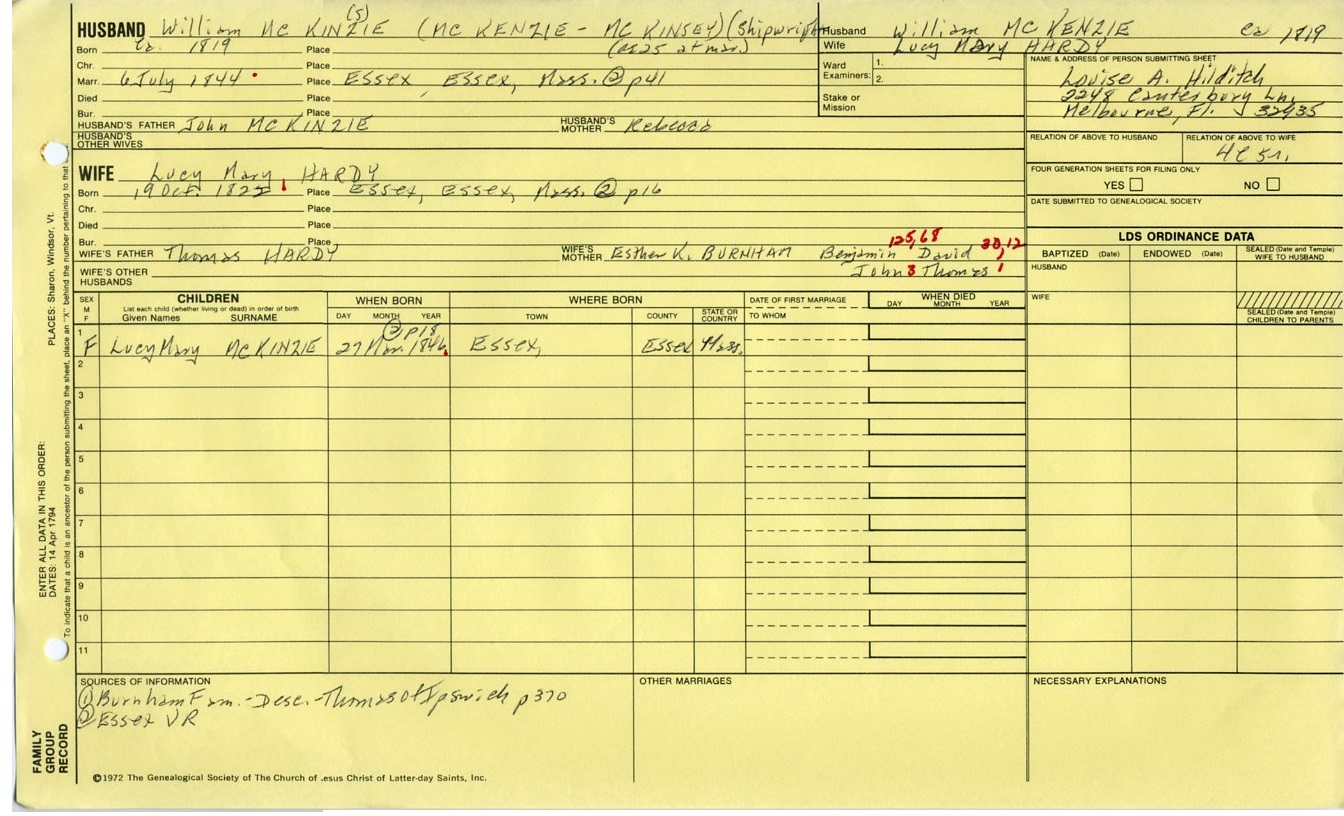 HUSBAND William MC KINZIE (S) (MC KENZIE - MC KINSEY) (Shipwright
Born Ca. 1819 Place (at 25 at mar.)
Chr. Place
Marr. 6 July 1844 Place Essex, Essex, Mass. ② p41
Died Place
Bur. Place
HUSBAND'S FATHER John MC KINZIE HUSBAND'S MOTHER Rebecca
HUSBAND'S OTHER WIVES
Husband William MC KENZIE Ca 1819
Wife Lucy Mary HARDY
Ward Examiners: 1.
2.
Stake or Mission
NAME & ADDRESS OF PERSON SUBMITTING SHEET
Louise A. Hilditch
2248 Canterbury Ln.
Melbourne, Fl. 32935
RELATION OF ABOVE TO HUSBAND RELATION OF ABOVE TO WIFE
FOUR GENERATION SHEETS FOR FILING ONLY
YES NO
DATE SUBMITTED TO GENEALOGICAL SOCIETY
WIFE Lucy Mary HARDY
Born 19 Oct. 1825 Place Essex, Essex, Mass. ② p16
Chr. Place
Died Place
Bur. Place
WIFE'S FATHER Thomas HARDY WIFE'S MOTHER Esther K. BURNHAM Benjamin 125,68 David 30,12
WIFE'S OTHER HUSBANDS John 8 Thomas 1
LDS ORDINANCE DATA
BAPTIZED (Date) ENDOWED (Date) SEALED (Date and Temple) WIFE TO HUSBAND
HUSBAND
WIFE
SEALED (Date and Temple) CHILDREN TO PARENTS
SEX M F CHILDREN WHEN BORN WHERE BORN DATE OF FIRST MARRIAGE WHEN DIED
List each child (whether living or dead) in order of birth
Given Names SURNAME DAY MONTH YEAR TOWN COUNTY STATE OR COUNTRY TO WHOM DAY MONTH YEAR
② p18
1 F Lucy Mary MC KINZIE 27 Mar. 1846 Essex, Essex Mass.
2
3
4
5
6
7
8
9
10
11
SOURCES OF INFORMATION
① Burnham Fam. - Desc. - Thomas of Ipswich p 370
② Essex VR
OTHER MARRIAGES
NECESSARY EXPLANATIONS
©1972 The Genealogical Society of The Church of Jesus Christ of Latter-day Saints, Inc.
FAMILY GROUP RECORD
ENTER ALL DATA IN THIS ORDER:
DATES: 14 Apr 1794 PLACES: Sharon, Windsor, Vt.
To indicate that a child is an ancestor of the person submitting the sheet, place an "X" behind the number pertaining to that